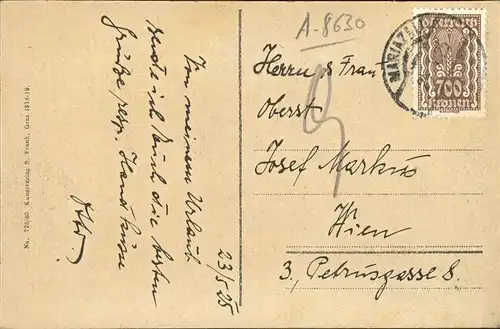 A-8630
Herrn & Frau
Oberst
Josef Markus
Wien
3, Petrusgasse 8.
MARIAZELL
ÖSTERREICH
700
KRONEN
23/5 25
Von meinem Urlaub
sende ich Euch die besten
Grüße, resp. Handküsse
Otto.
No. 723/60. Kunstverlag B. Frank, Graz. 1918-19.